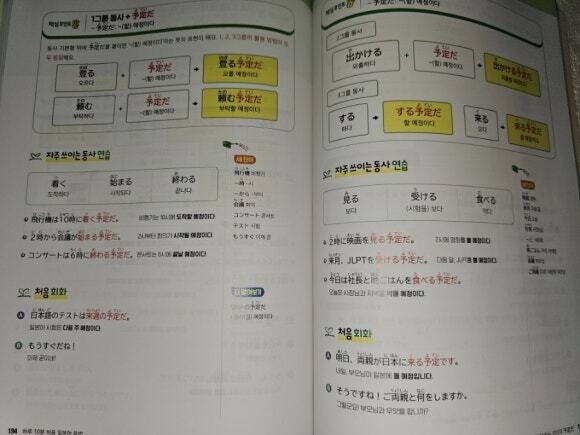 핵심 포인트
1그룹 동사 + 予定だ
~ 予定だ : ~(할) 예정이다
登る
오르다
+
予定だ
~(할) 예정이다
登る予定だ
오를 예정이다
頼む
부탁하다
+
予定だ
~(할) 예정이다
頼む予定だ
부탁할 예정이다
자주 쓰이는 동사 연습
着く
도착하다
始まる
시작되다
終わる
끝나다
飛行機は10時に着く予定だ。
비행기는 10시에 도착할 예정이다.
2時から会議が始まる予定だ。
2시부터 회의가 시작될 예정이다.
コンサートは6時に終わる予定だ。
콘서트는 6시에 끝날 예정이다.
새 단어
飛行機 비행기
~時 ~시
~から ~부터
会議 회의
コンサート 콘서트
テスト 시험
もうすぐ 이제 곧
처음 회화
A 日本語のテストは来週の予定だ。
일본어 시험은 다음 주 예정이다.
B もうすぐだね!
이제 곧이네!
194 하루 10분 처음 일본어 문법
2그룹 동사
出かける
외출하다
+
予定だ
~(할) 예정이다
出かける予定だ
외출할 예정이다
3그룹 동사
する
하다
する予定だ
할 예정이다
来る
오다
来る予定だ
올 예정이다
자주 쓰이는 동사 연습
見る
보다
受ける
(시험을) 보다
食べる
먹다
2時に映画を見る予定だ。
2시에 영화를 볼 예정이다.
来月、JLPTを受ける予定だ。
다음 달, JLPT를 볼 예정이다.
今日は社長と晩ごはんを食べる予定だ。
오늘은 사장님과 저녁을 먹을 예정이다.
처음 회화
A 明日、両親が日本に来る予定です。
내일, 부모님이 일본에 올 예정입니다.
B そうですね!ご両親と何をしますか。
그렇군요! 부모님과 무엇을 합니까?